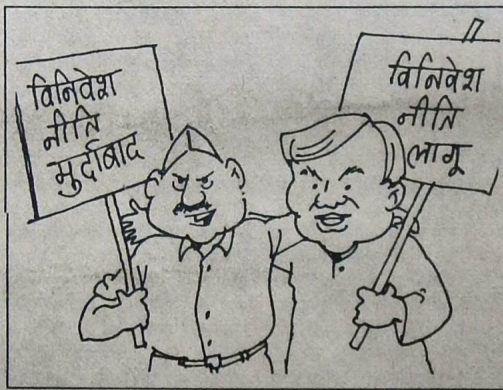 विनिवेश
नीति
मुर्दाबाद
विनिवेश
नीति
लागू